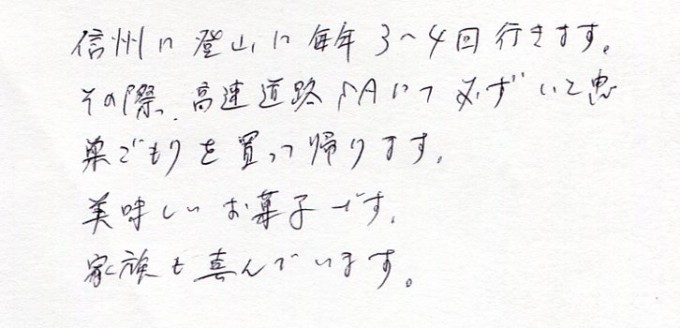 信州に登山に毎年3〜4回行きます。
その際、高速道路SAにて必ずいと忠
巣ごもりを買って帰ります。
美味しいお菓子です。
家族も喜んでいます。